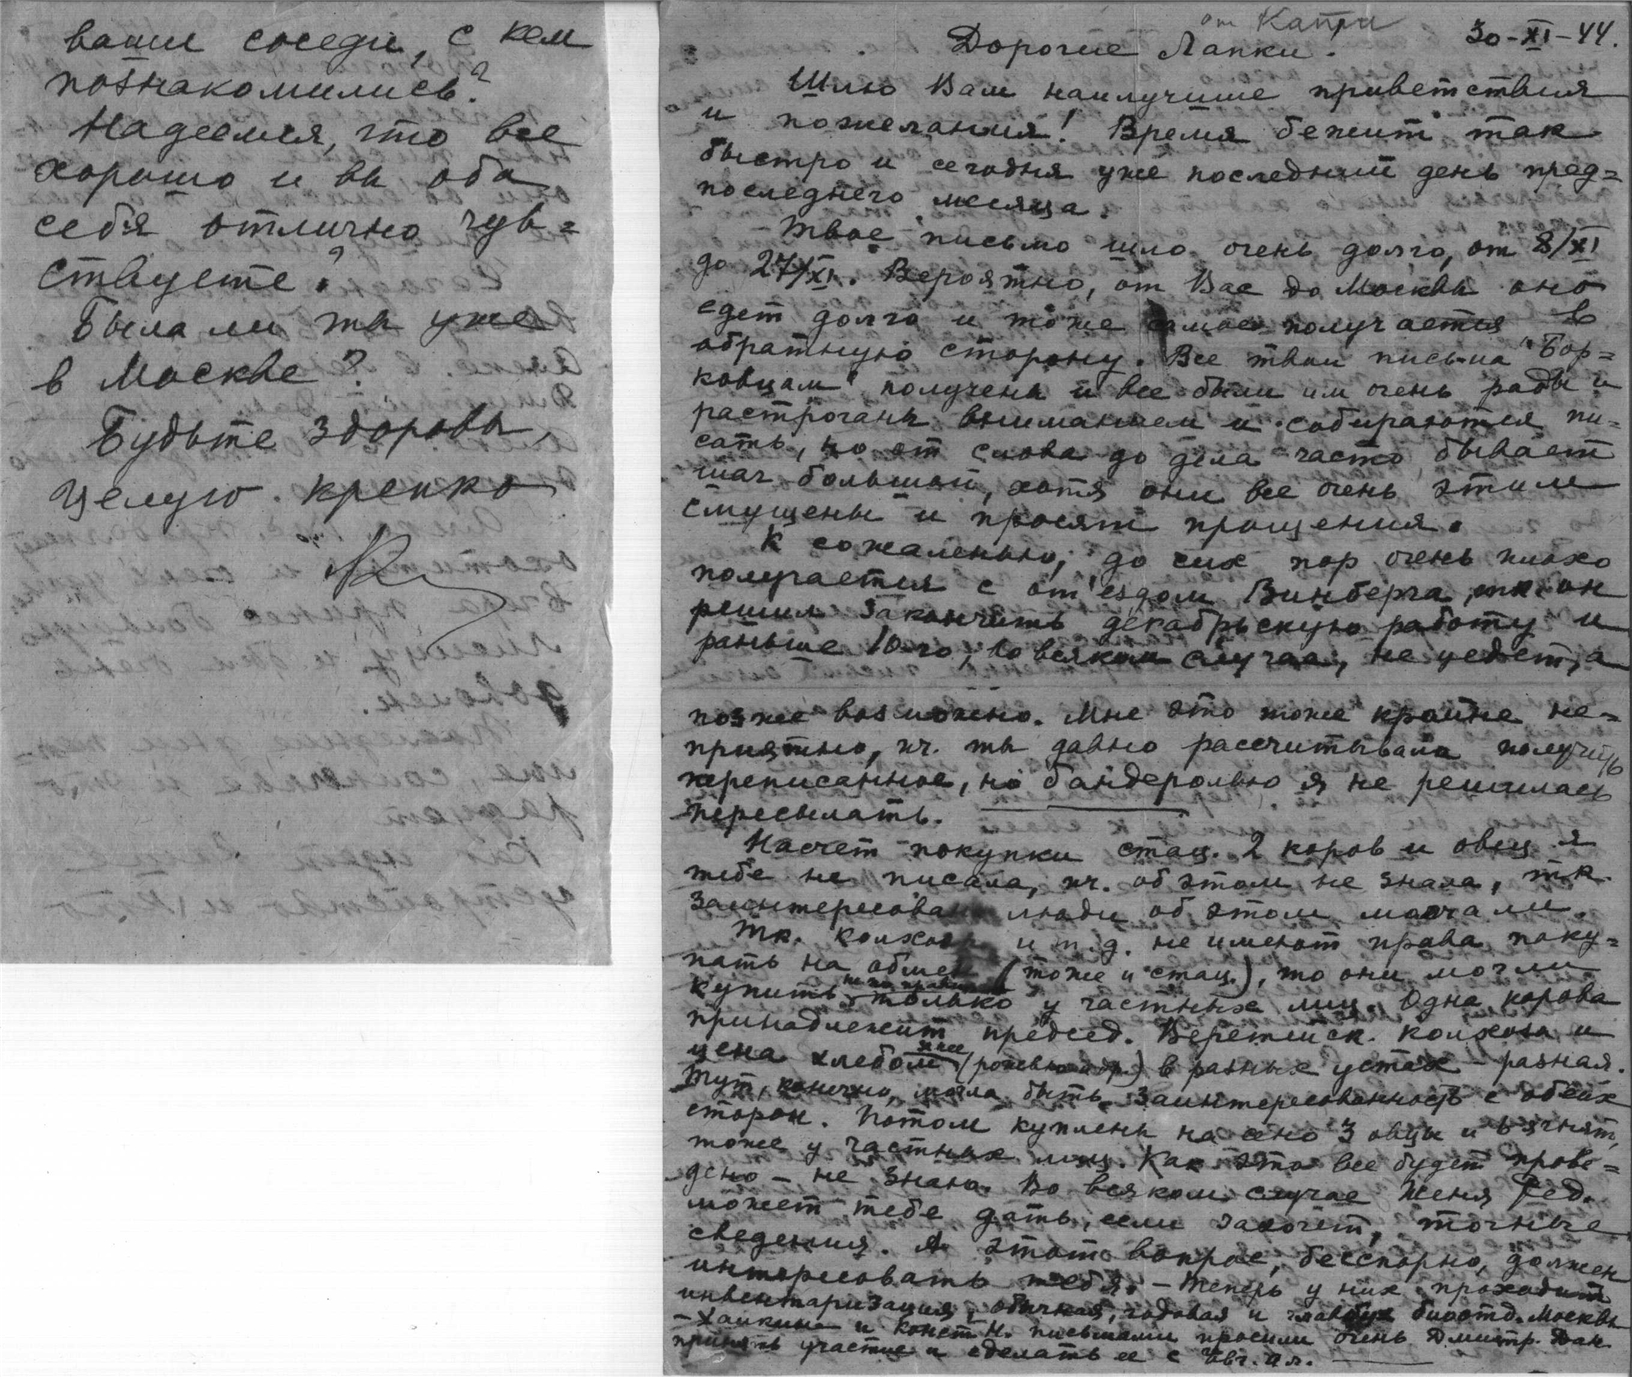 ваши соседи, с кем
познакомились?
Надеемся, что все
хорошо и вы оба
себя отлично чув=
ствуете?
Была ли ты уже
в Москве?
Будьте здоровы,
целую крепко
от Капри
30-XI-44.
Дорогие Лапки.
Шлю Вам наилучшие приветствия
и пожелания! Время бежит так
быстро и сегодня уже последний день пред=
последнего месяца.
Твое письмо шло очень долго, от 8/XI
до 27/XI. Вероятно, от Вас до Москвы оно
едет долго и тоже самое получается в
обратную сторону. Все твои письма "Бор=
ковцам" получены и все были им очень рады и
растроганы вниманием и собираются пи=
сать, но от слова до дела часто бывает
шаг большой, хотя они все очень этим
смущены и просят прощения.
К сожаленью, до сих пор очень плохо
получается с от'ездом Винберга, тк. он
решил закончить декабрьскую работу и
раньше 10-го, во всяком случае, не уедет, а
позже возможно. Мне это тоже крайне не=
приятно, пч. ты давно рассчитывала получить
переписанное, но бандеролью я не решилась
пересылать.
Насчет покупки стац. 2 коров и овец я
тебе не писала, пч. об этом не знала, т.к.
заинтересован люди об этом молчали.
Тк. колхозы и т.д. не имеют права поку=
пать на обмен (тоже и стац.), то они могли
купить только у частных лиц. Одна корова
принадлежит председ. Веретийск. колхоза и
цена хлебом (рожью и др.) в разных устах - разная.
Тут, конечно, могла быть заинтересованность с обеих
сторон. Потом куплены на сено 3 овцы и ягнят,
тоже у частных лиц. Как это все будет прове=
дено - не знаю. Во всяком случае Женя Фед.
может тебе дать, если захочет, точные
сведения. А этот вопрос, бесспорно, должен
интересовать тебя. - Теперь у них проходит
инвентаризация, обычная, годовая и главбух биоотд. Москвы
- Хайкина и Конст. Н. письмами просили очень Дмитр. Дан.
принять участие и сделать ее с